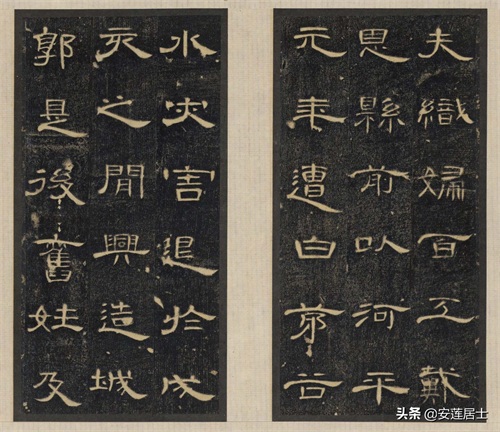 夫織婦百工戴
恩縣前以河平
元年遭白茅谷
水灾害退於戌
亥之間興造城
郭是後舊姓及
头条 @安莲居士